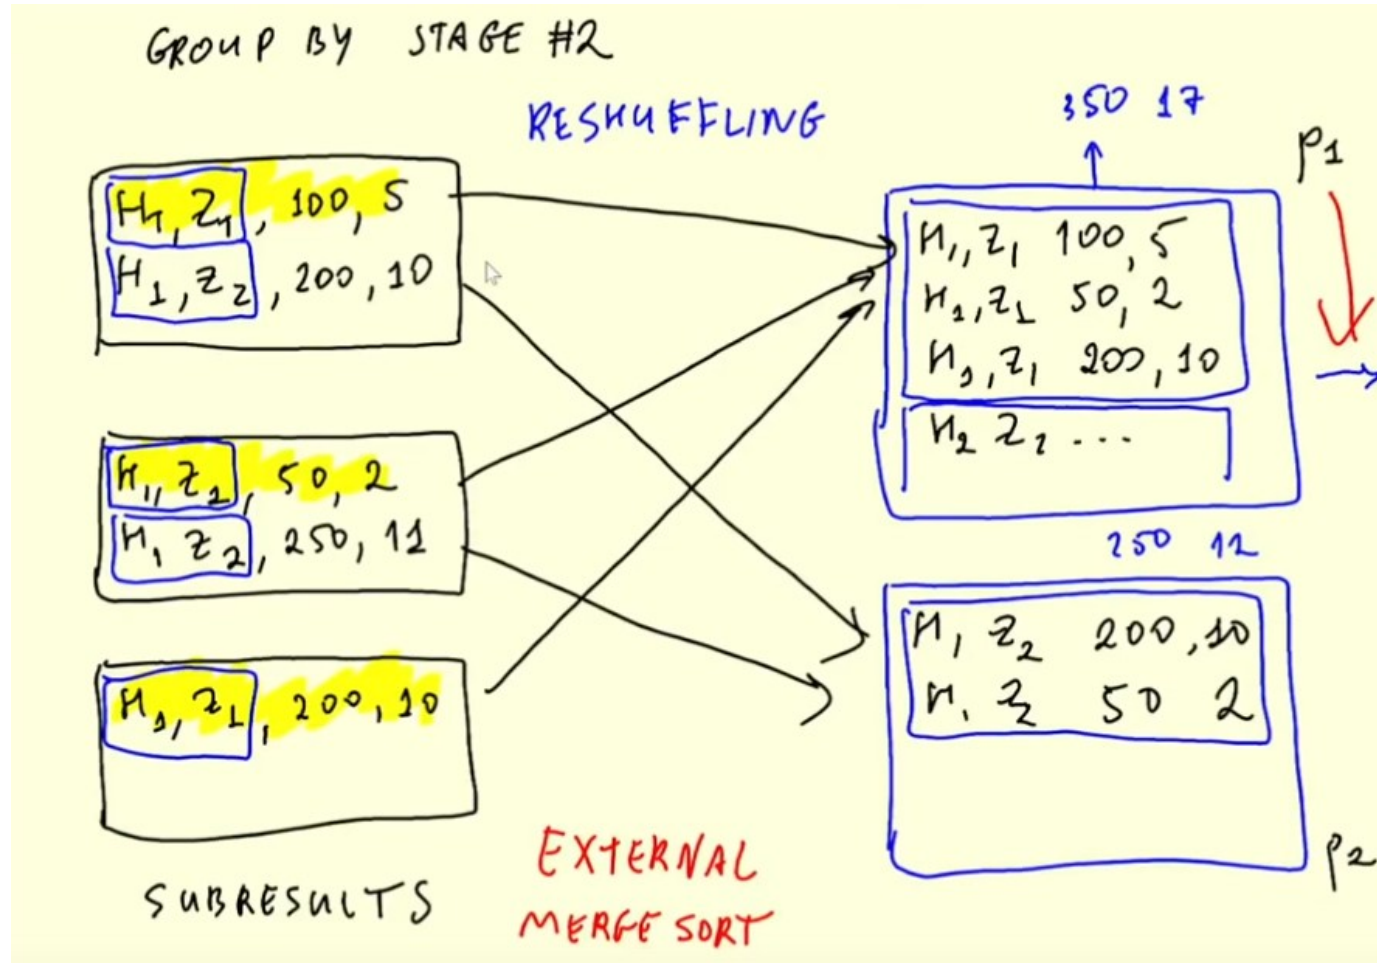 GROUP BY STAGE #2
RESHUFFLING
350 17
P1
H1, Z1, 100, 5
H1, Z2, 200, 10
H1, Z1 100, 5
H1, Z1 50, 2
H1, Z1 200, 10
H2 Z2 ...
H1, Z1, 50, 2
H1 Z2, 250, 11
250 12
H1 Z2 200, 10
H1 Z2 50 2
H1, Z1, 200, 10
P2
SUBRESULTS
EXTERNAL
MERGE SORT